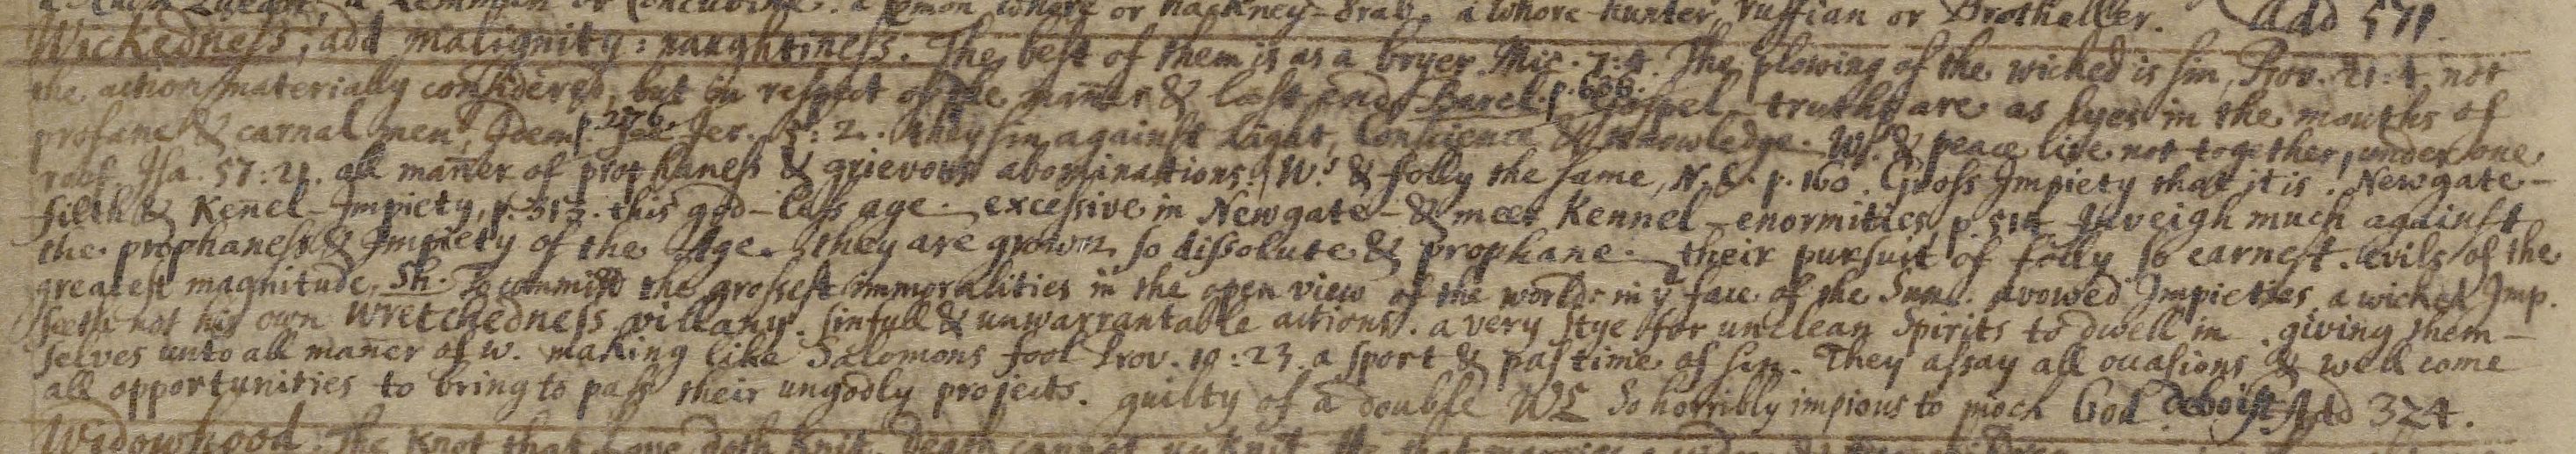 or Concubine. a common whore or hackney-drab, a whore-hunter, ruffian or Brotheller. Add 571.
Wickedness, add malignity: naughtiness. The best of them is as a bryer Mic. 7:4. The plowing of the wicked is sin, Prov. 21:4 not
the action materially considered, but in respect of the mañer & last end Barel. p. 606. Gospel-truths are as lyes in the mouths of
profane & carnal men, Idem p. 276. Jer. 5:2. they sin against Light, Conscience & Knowledge. Ws. & peace live not together, under one
roof Isa. 57:21. all mañer of prophaness & grievous abominations. W.s & folly the same, N.C. p. 160. Gross Impiety that it is! Newgate-
filth & Keñel-Impiety, p. 513. this god-less age. excessive in Newgate- & meer Kennel-enormities, p. 514 Inveigh much against
the prophaness & Impiety of the Age. they are grown so dissolute & prophane. their pursuit of folly so earnest. Evils of the
greatest magnitude, Sh. To commit the grossest immoralities in the open view of the world: in ye face of the Sun. avowed Impieties. a wicked Imp.
seeth not his own Wretchedness. villany. sinfull & unwarrantable actions. a very stye for unclean Spirits to dwell in. giving them-
selves unto all mañer of w. making like Salomons fool Prov. 10:23. a sport & pastime of sin. They assay all occasions & well come
all opportunities to bring to pass their ungodly projects. guilty of a double W So horribly impious to mock God. deboist. Add 324.
Widowhood. The Knot that Love doth Knit, Death cannot unKnit